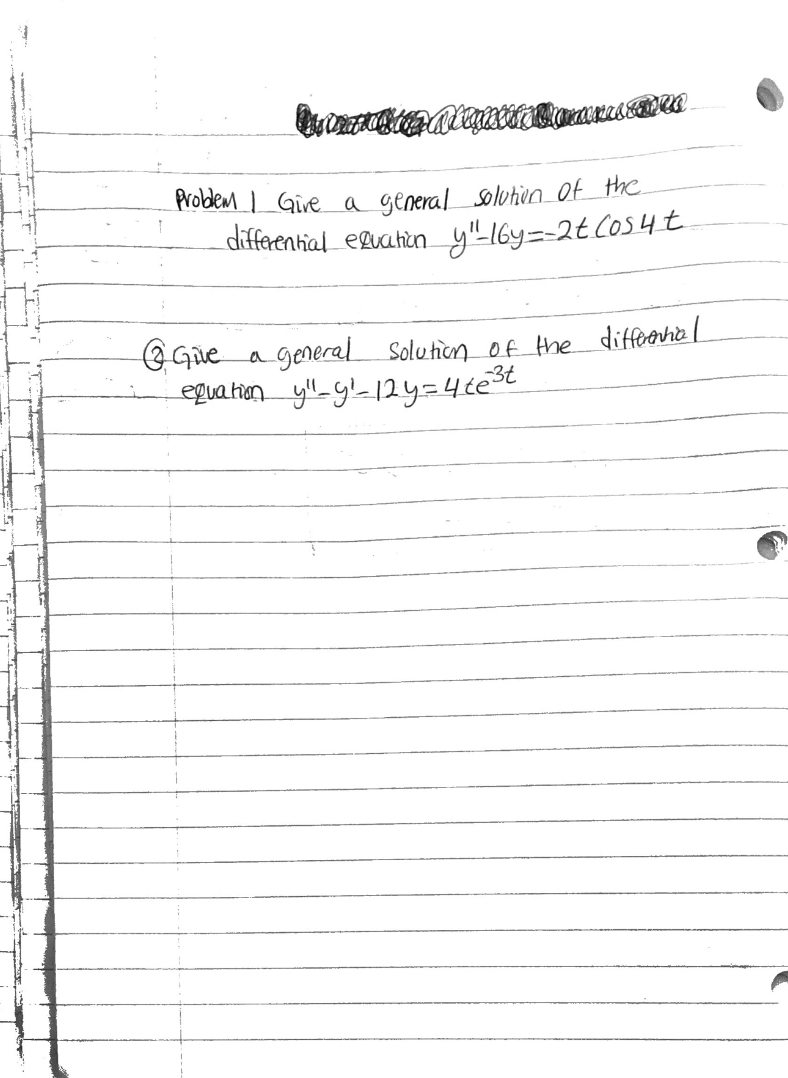 Problem 1 Give a general solution of the
differential equation y"-16y=-2t Cos4t
② Give a general solution of the differential
equation y"-y'-12y=4te^-3t